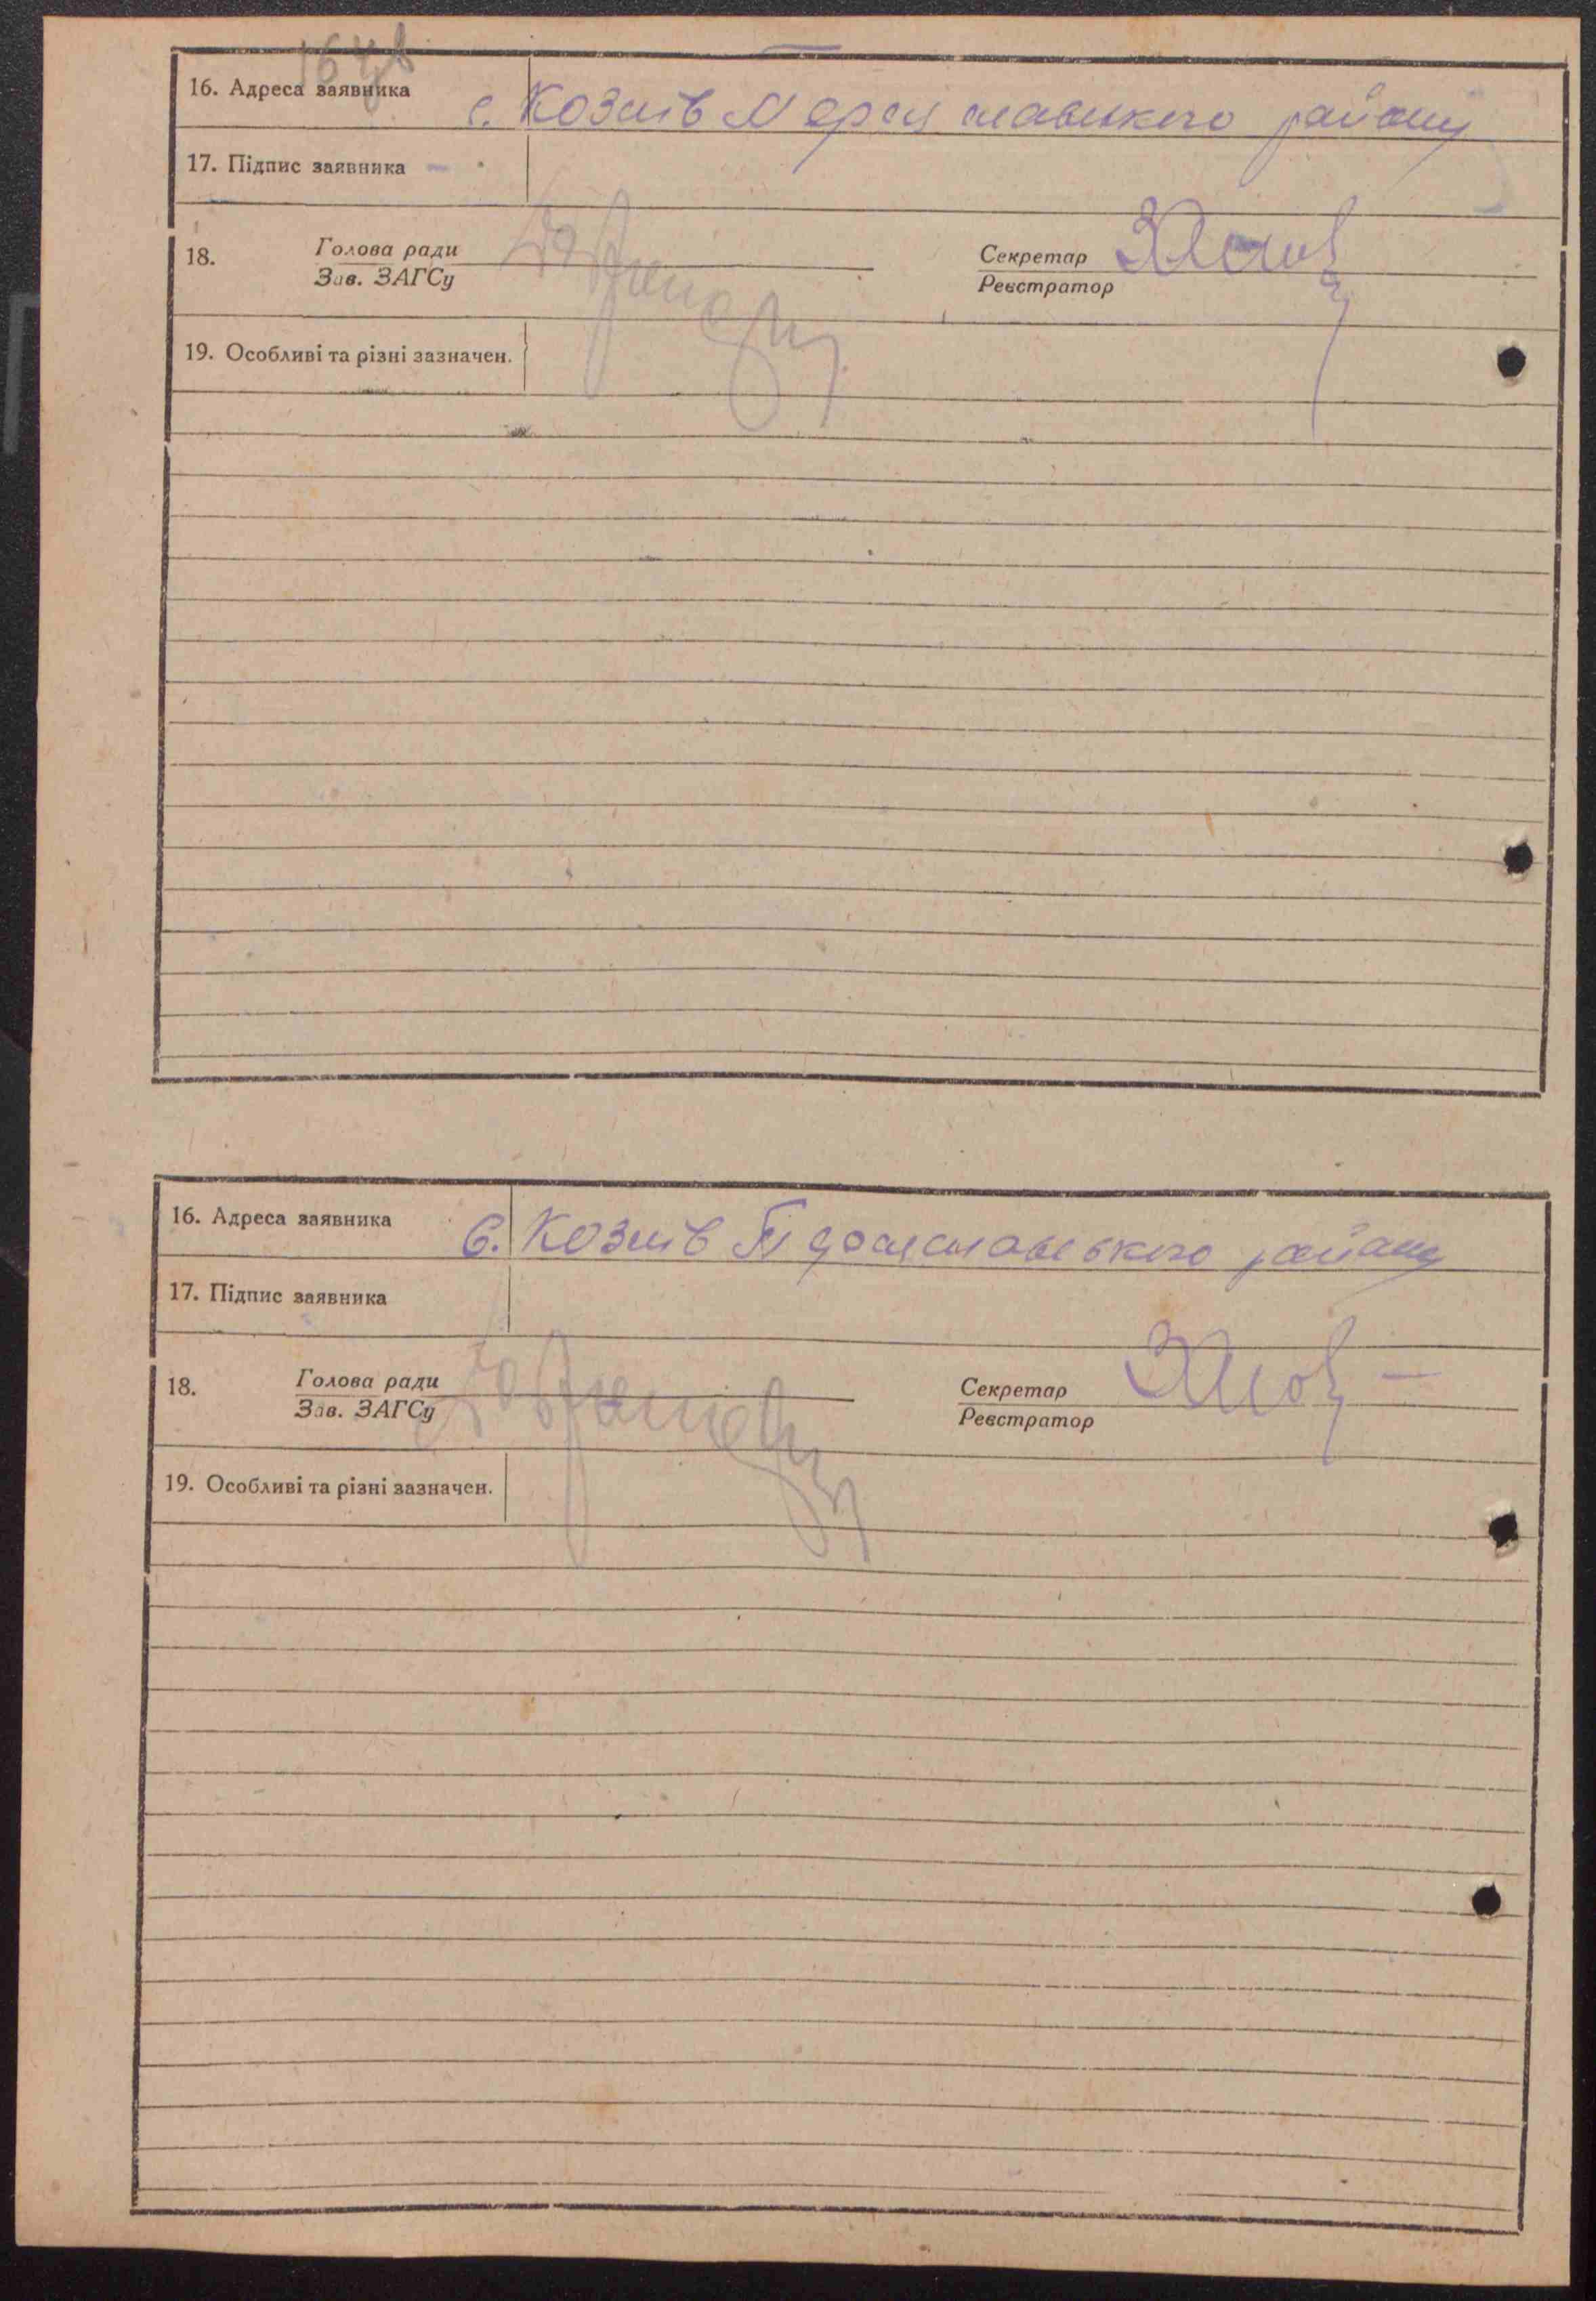 16 зв
16. Адреса заявника с. Козлів Переяславського району
17. Підпис заявника
18. Голова ради
Зав. ЗАГСу
Секретар
Реєстратор
19. Особливі та різні зазначен.
16. Адреса заявника с. Козлів Переяславського району
17. Підпис заявника
18. Голова ради
Зав. ЗАГСу
Секретар
Реєстратор
19. Особливі та різні зазначен.